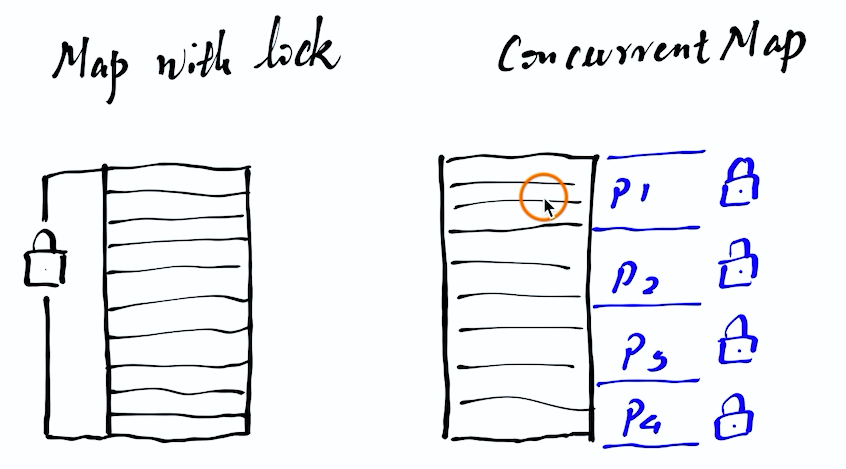 Map with lock
Concurrent Map
P1
P2
P3
P4